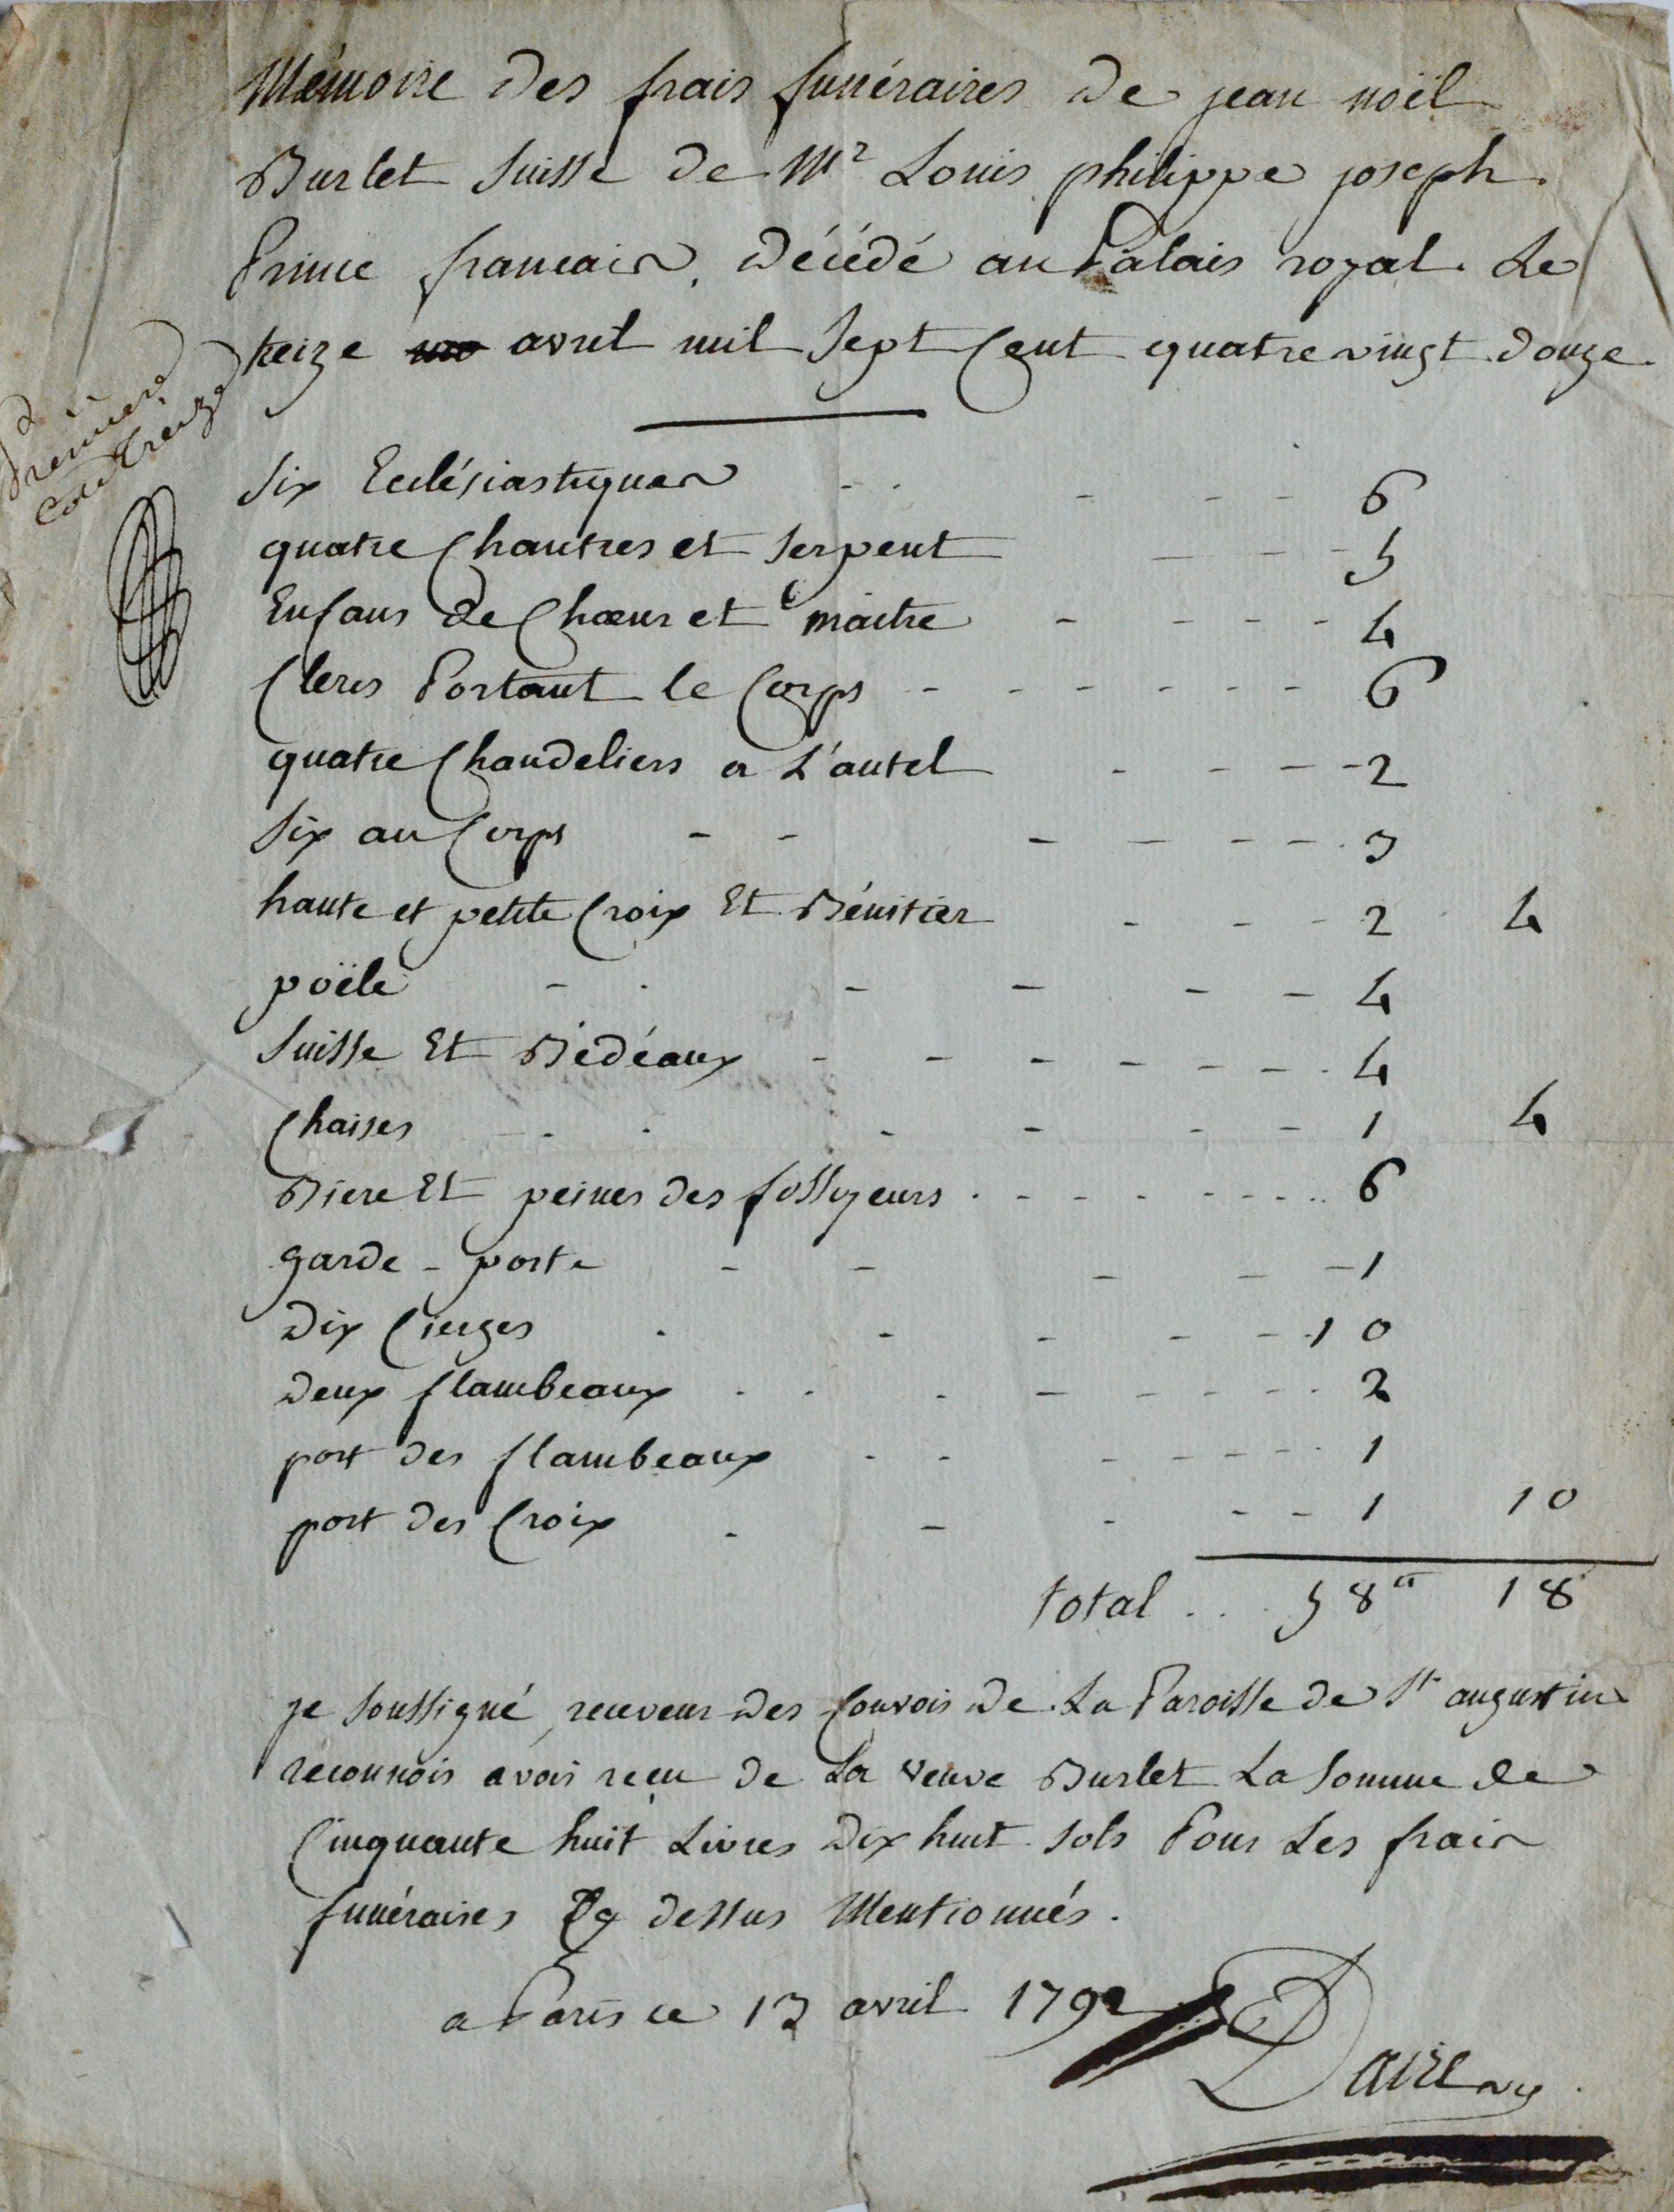 Mémoire des frais funéraires de jean noël
Burlet Suisse de Mr Louis philippe joseph.
Prince francais, décédé au Palais royal. Le
treize avril mil Sept Cent quatre vingt douze.
Premiere
Cote treize
Six Ecclésiastiques - - - - - 6
quatre Chantres et Serpent - - - 5
Enfans de Choeur et maitre - - - - 4
Clercs Portant le Corps - - - - - - 6
quatre Chandeliers a L'autel - - - - 2
Six au Corps - - - - - - 3
haute et petite Croix Et Bénitier - - - 2 4
poële - - - - - - 4
Suisse Et Bédéaux - - - - - - - 4
Chaises - - - - - - 1 4
Biere Et peines des fossoyeurs - - - - - - - 6
garde - porte - - - - - 1
Dix Cierges - - - - - 10
Deux flambeaux - - - - - - - - 2
port des flambeaux - - - - - - 1
port des Croix - - - - - 1 10
total . . . 58# 18
je Soussigné, receveur des Convois de La Paroisse de St augustin
reconnois avoir reçu de La veuve Burlet La Somme de
Cinquante huit Livres Dix huit Sols Pour Les frais
funéraires Cy dessus Mentionnés.
a Paris ce 13 avril 1792